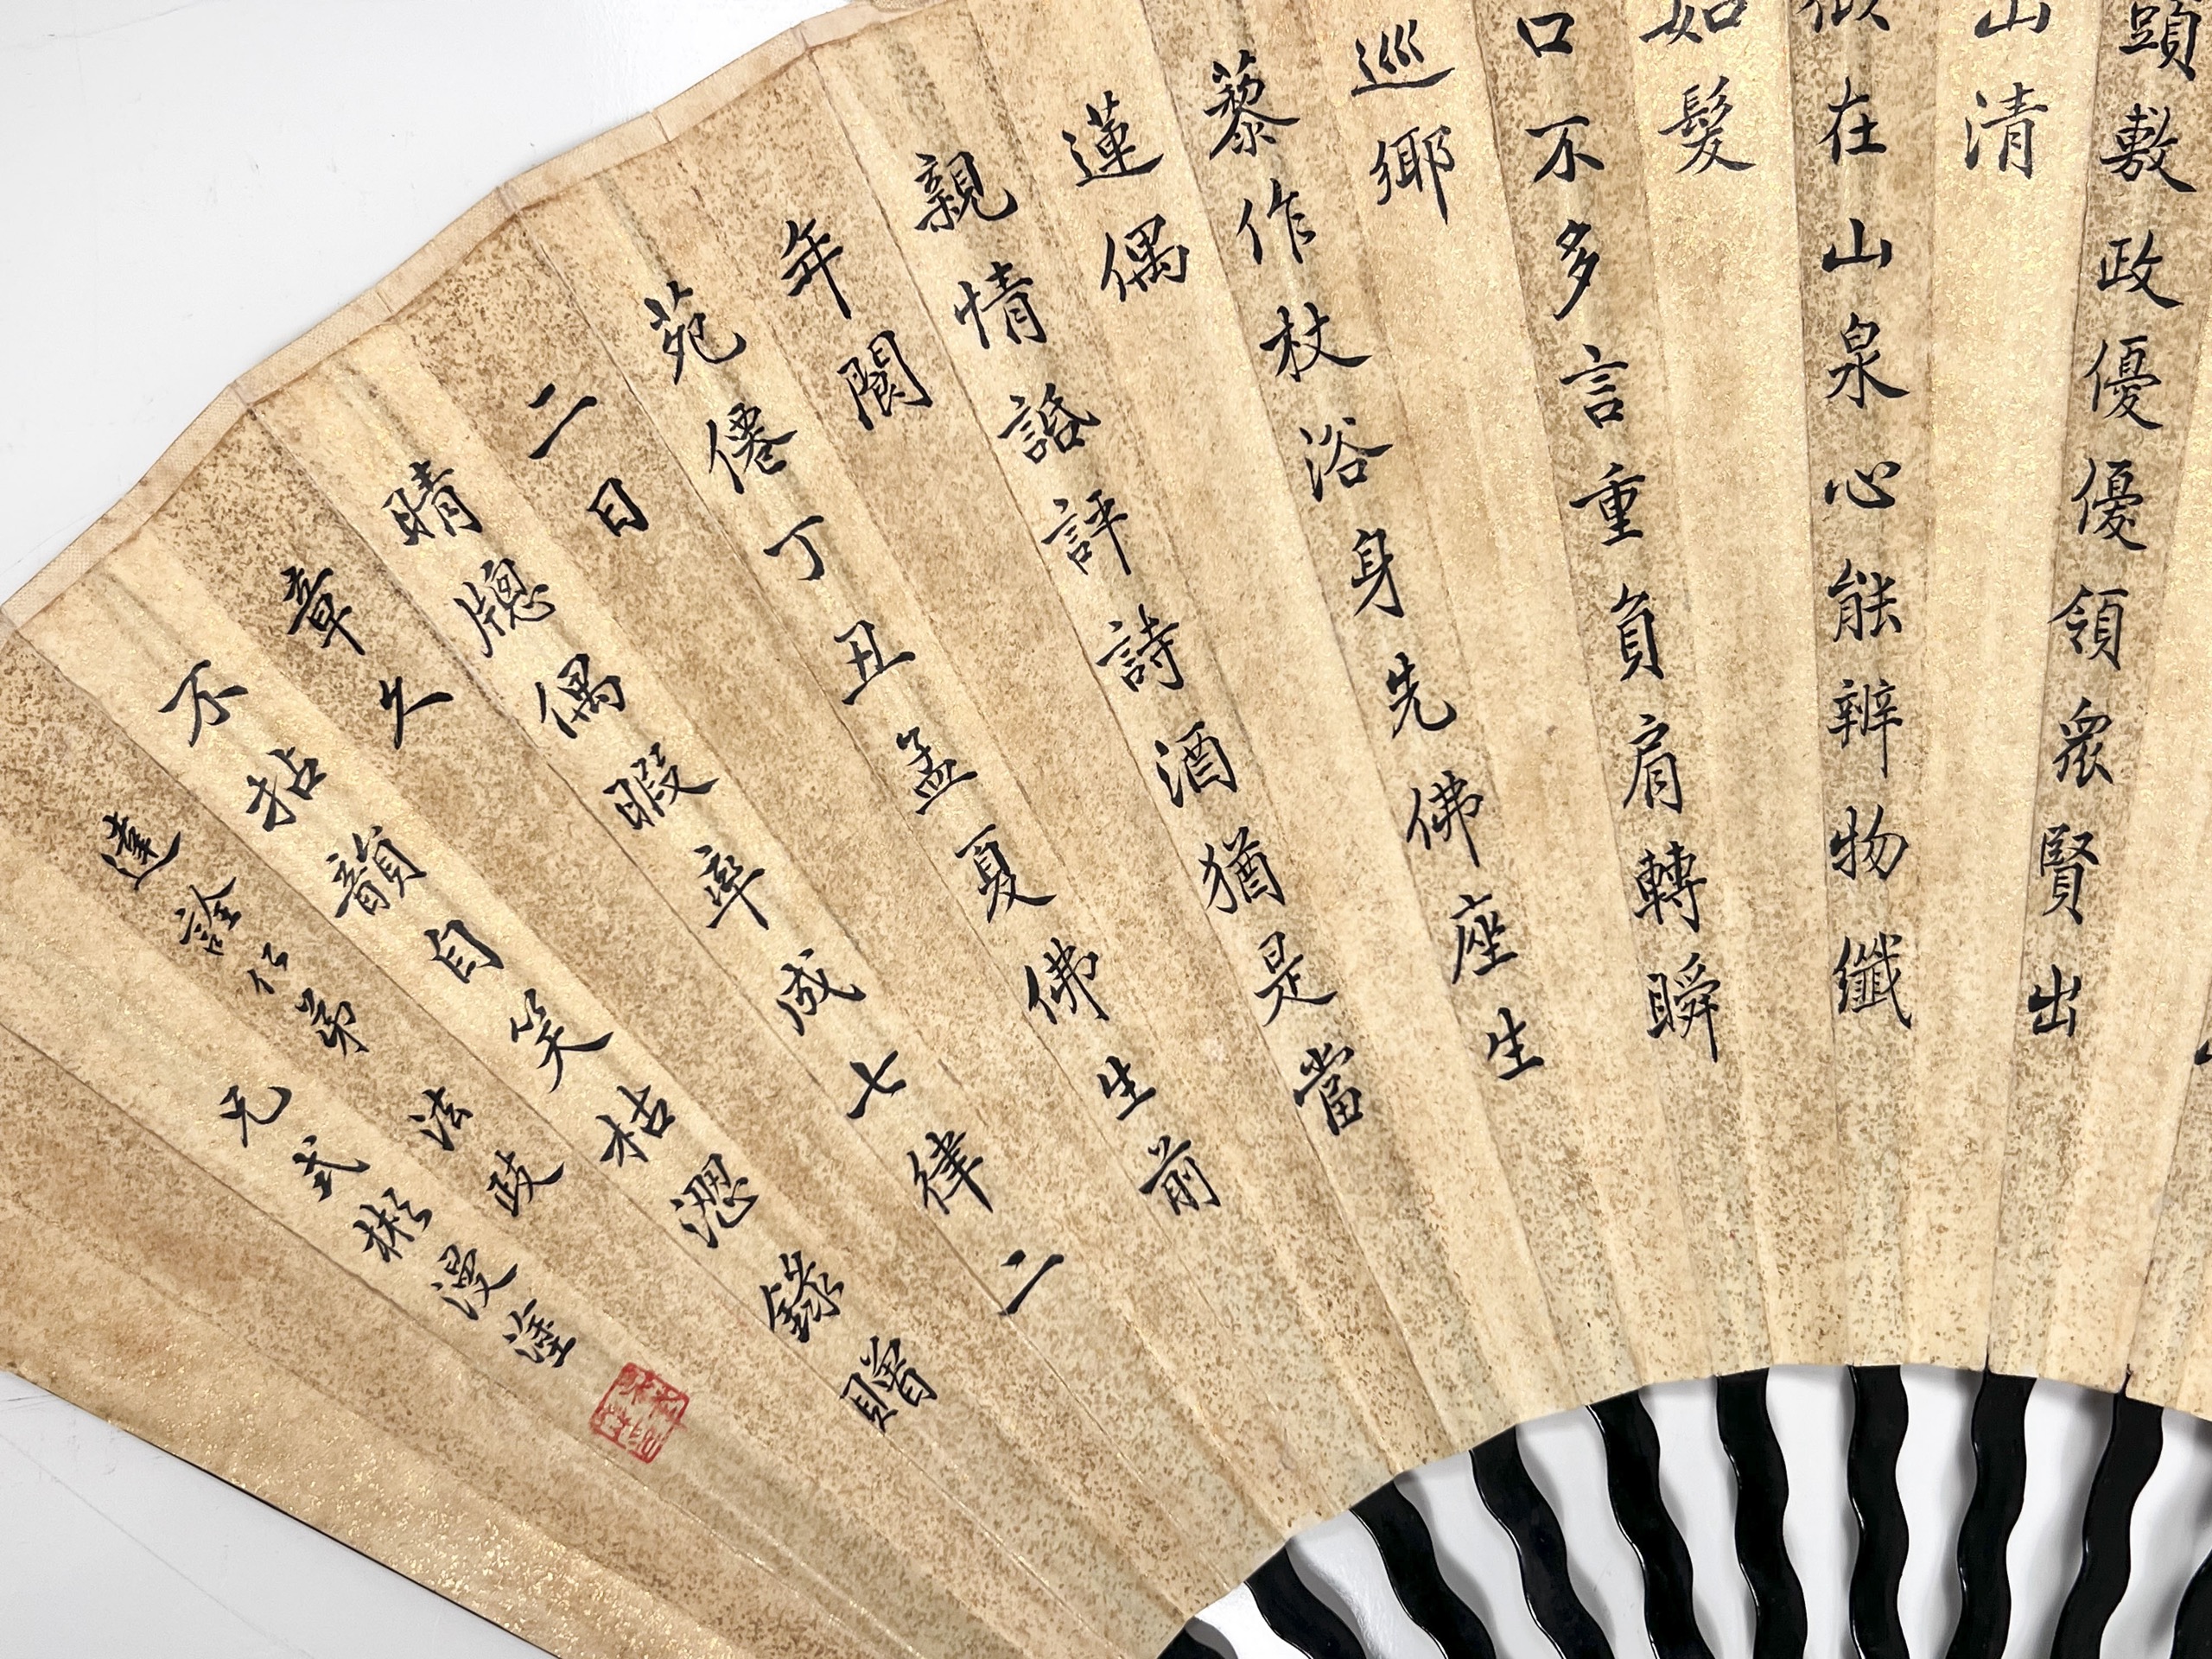 頭敷政優優領衆賢出
山清
似在山泉心能辨物纖
如髮
口不多言重負肩轉瞬
巡鄉
藜作杖浴身先佛座生
蓮偶
親情諙評詩酒猶是當
年閬
苑僊丁丑孟夏佛生前
二日
晴牕偶暇率成七律二
章久
不拈韻自笑枯澀錄贈
達詮仁弟 法政
兄式彬漫塗